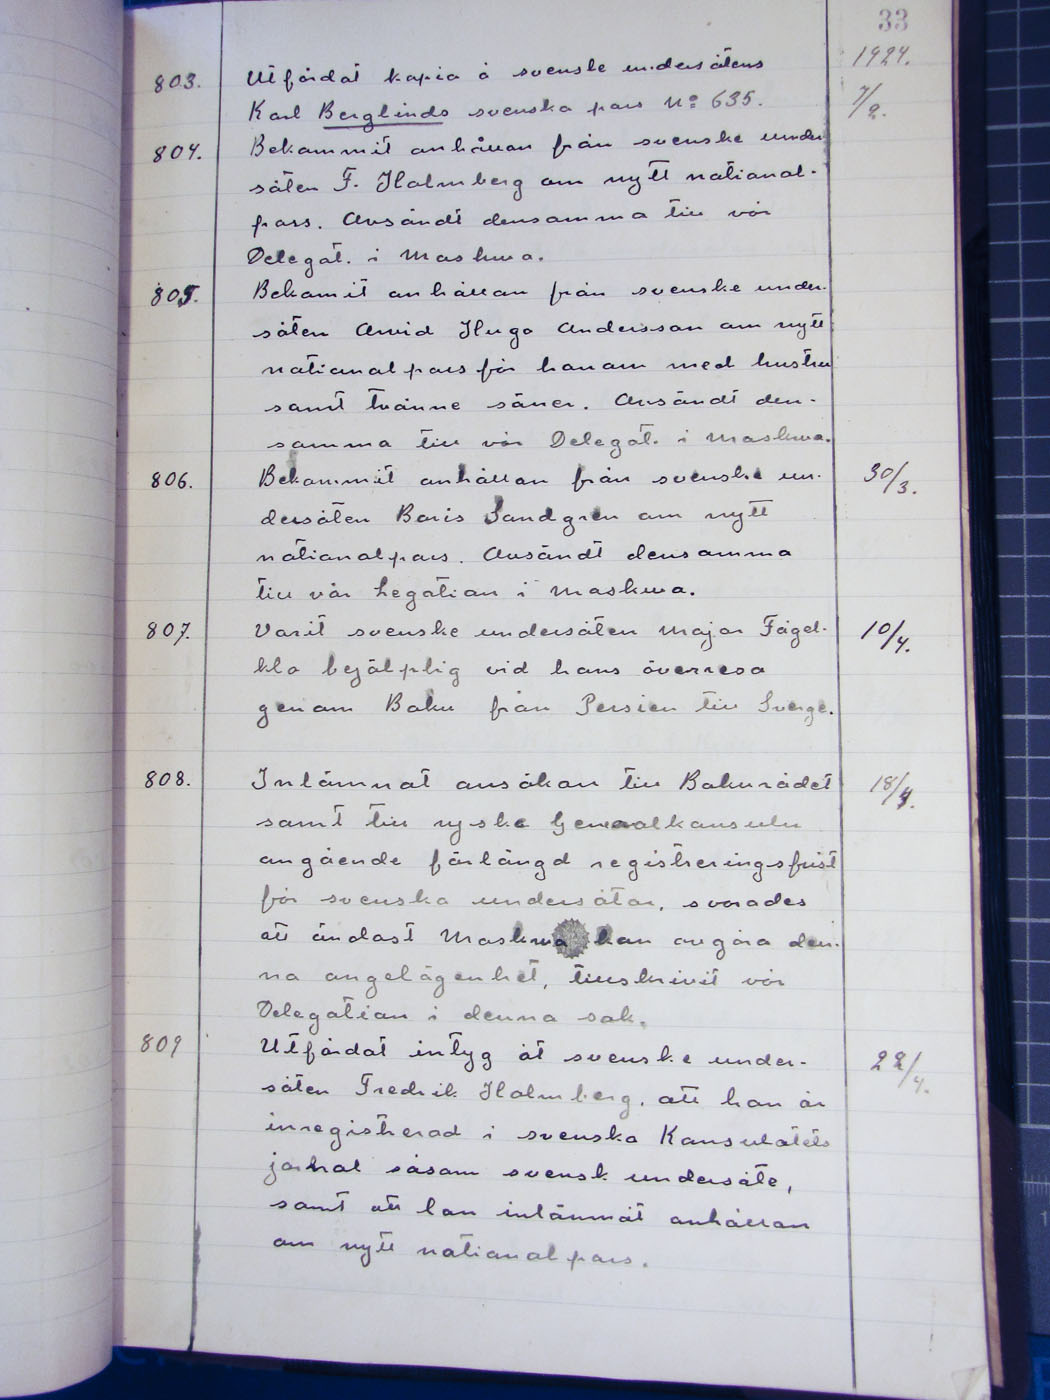 33
1924.
803. Utfärdat kopia å svenske undersåtens 7/2.
Karl Berglinds svenska pass No 635.
804. Bekommit anhållan från svenske under
såten F. Holmberg om nytt national-
pass. Avsändt densamma till vår
Delegat. i Moskwa.
805. Bekomit anhållan från svenske under-
såten Arvid Hugo Andersson om nytt
nationalpass för honom med hustru
samt tvänne söner. Avsändt den-
samma till vår Delegat. i Moskwa.
806. Bekommit anhållan från svenske un- 30/3.
dersåten Boris Sandgren om nytt
nationalpass. Avsändt densamma
till vår Legation i Moskwa.
807. Varit svenske undersåten Major Fågel- 10/4.
klo bejälplig vid hans överresa
genom Baku från Persien till Sverge.
808. Inlämnat ansökan till Bakurådet 18/4.
samt till ryske Generalkonsuln
angående förlängd registreringsfrist
för svenska undersåtar, svarades
att ändast Moskwa kan avgöra den-
na angelägenhet, tillskrivit vår
Delegation i denna sak.
809 Utfärdat intyg åt svenske under- 22/4.
såten Fredrik Holmberg, att han är
inregistrerad i svenska Konsulatets
jornal såsom svensk undersåte,
samt att han inlämnat anhållan
om nytt nationalpass.